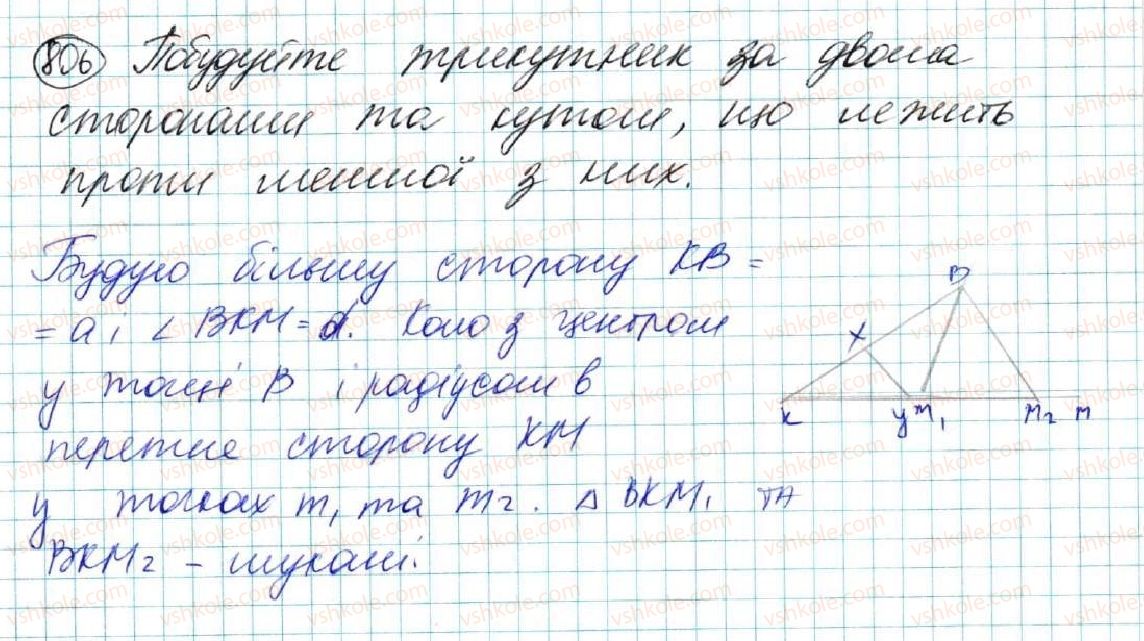 806 Побудуйте трикутник за двома
сторонами та кутом, що лежить
проти меншої з них.
Будую більшу сторону KB =
= a і ∠ BKM = α. Коло з центром
у точці B і радіусом b
перетне сторону KM
у точках m₁ та m₂. Δ BKM₁ та
BKM₂ – шукані.
B
X
K
y
M₁
M₂
M
vshkole.com